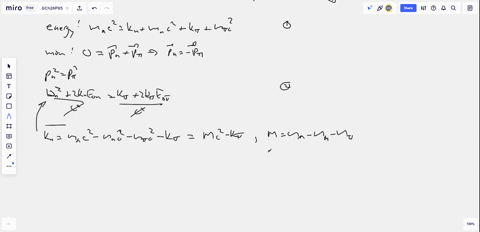 miro free GCh26Px5
Share
energy: mₙc² = kₙ + mₙc² + kπ + mπc² ①
mom: 0 = p⃗ₙ + p⃗π ⇒ p⃗ₙ = -p⃗π
pₙ² = pπ²
kₙ² + 2kₙE₀ₙ = kπ² + 2kπE₀π ②
c² c²
kₙ = mₙc² - mₙc² - mπc² - kπ = Mc² - kπ , M = mₙ - mₙ - mπ
100%